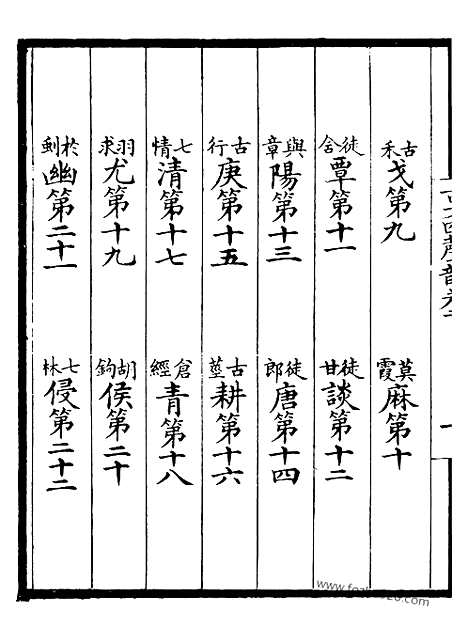 古禾戈第九　莫霞麻第十
徒含覃第十一　徒甘談第十二
與章陽第十三　徒郎唐第十四
古行庚第十五　古莖耕第十六
七情清第十七　倉經青第十八
羽求尤第十九　胡鉤侯第二十
於虯幽第二十一　七林侵第二十二